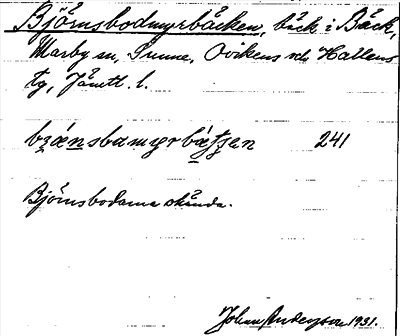 Björnsbodmyrbäcken, bäck i Bäck,
Marby sn, Sunne, Ovikens och Hallens
tg, Jämtl. l.
bzánsbamyrbátsen 241
Björnsbodarna okända.
Johan Anderzon 1931.